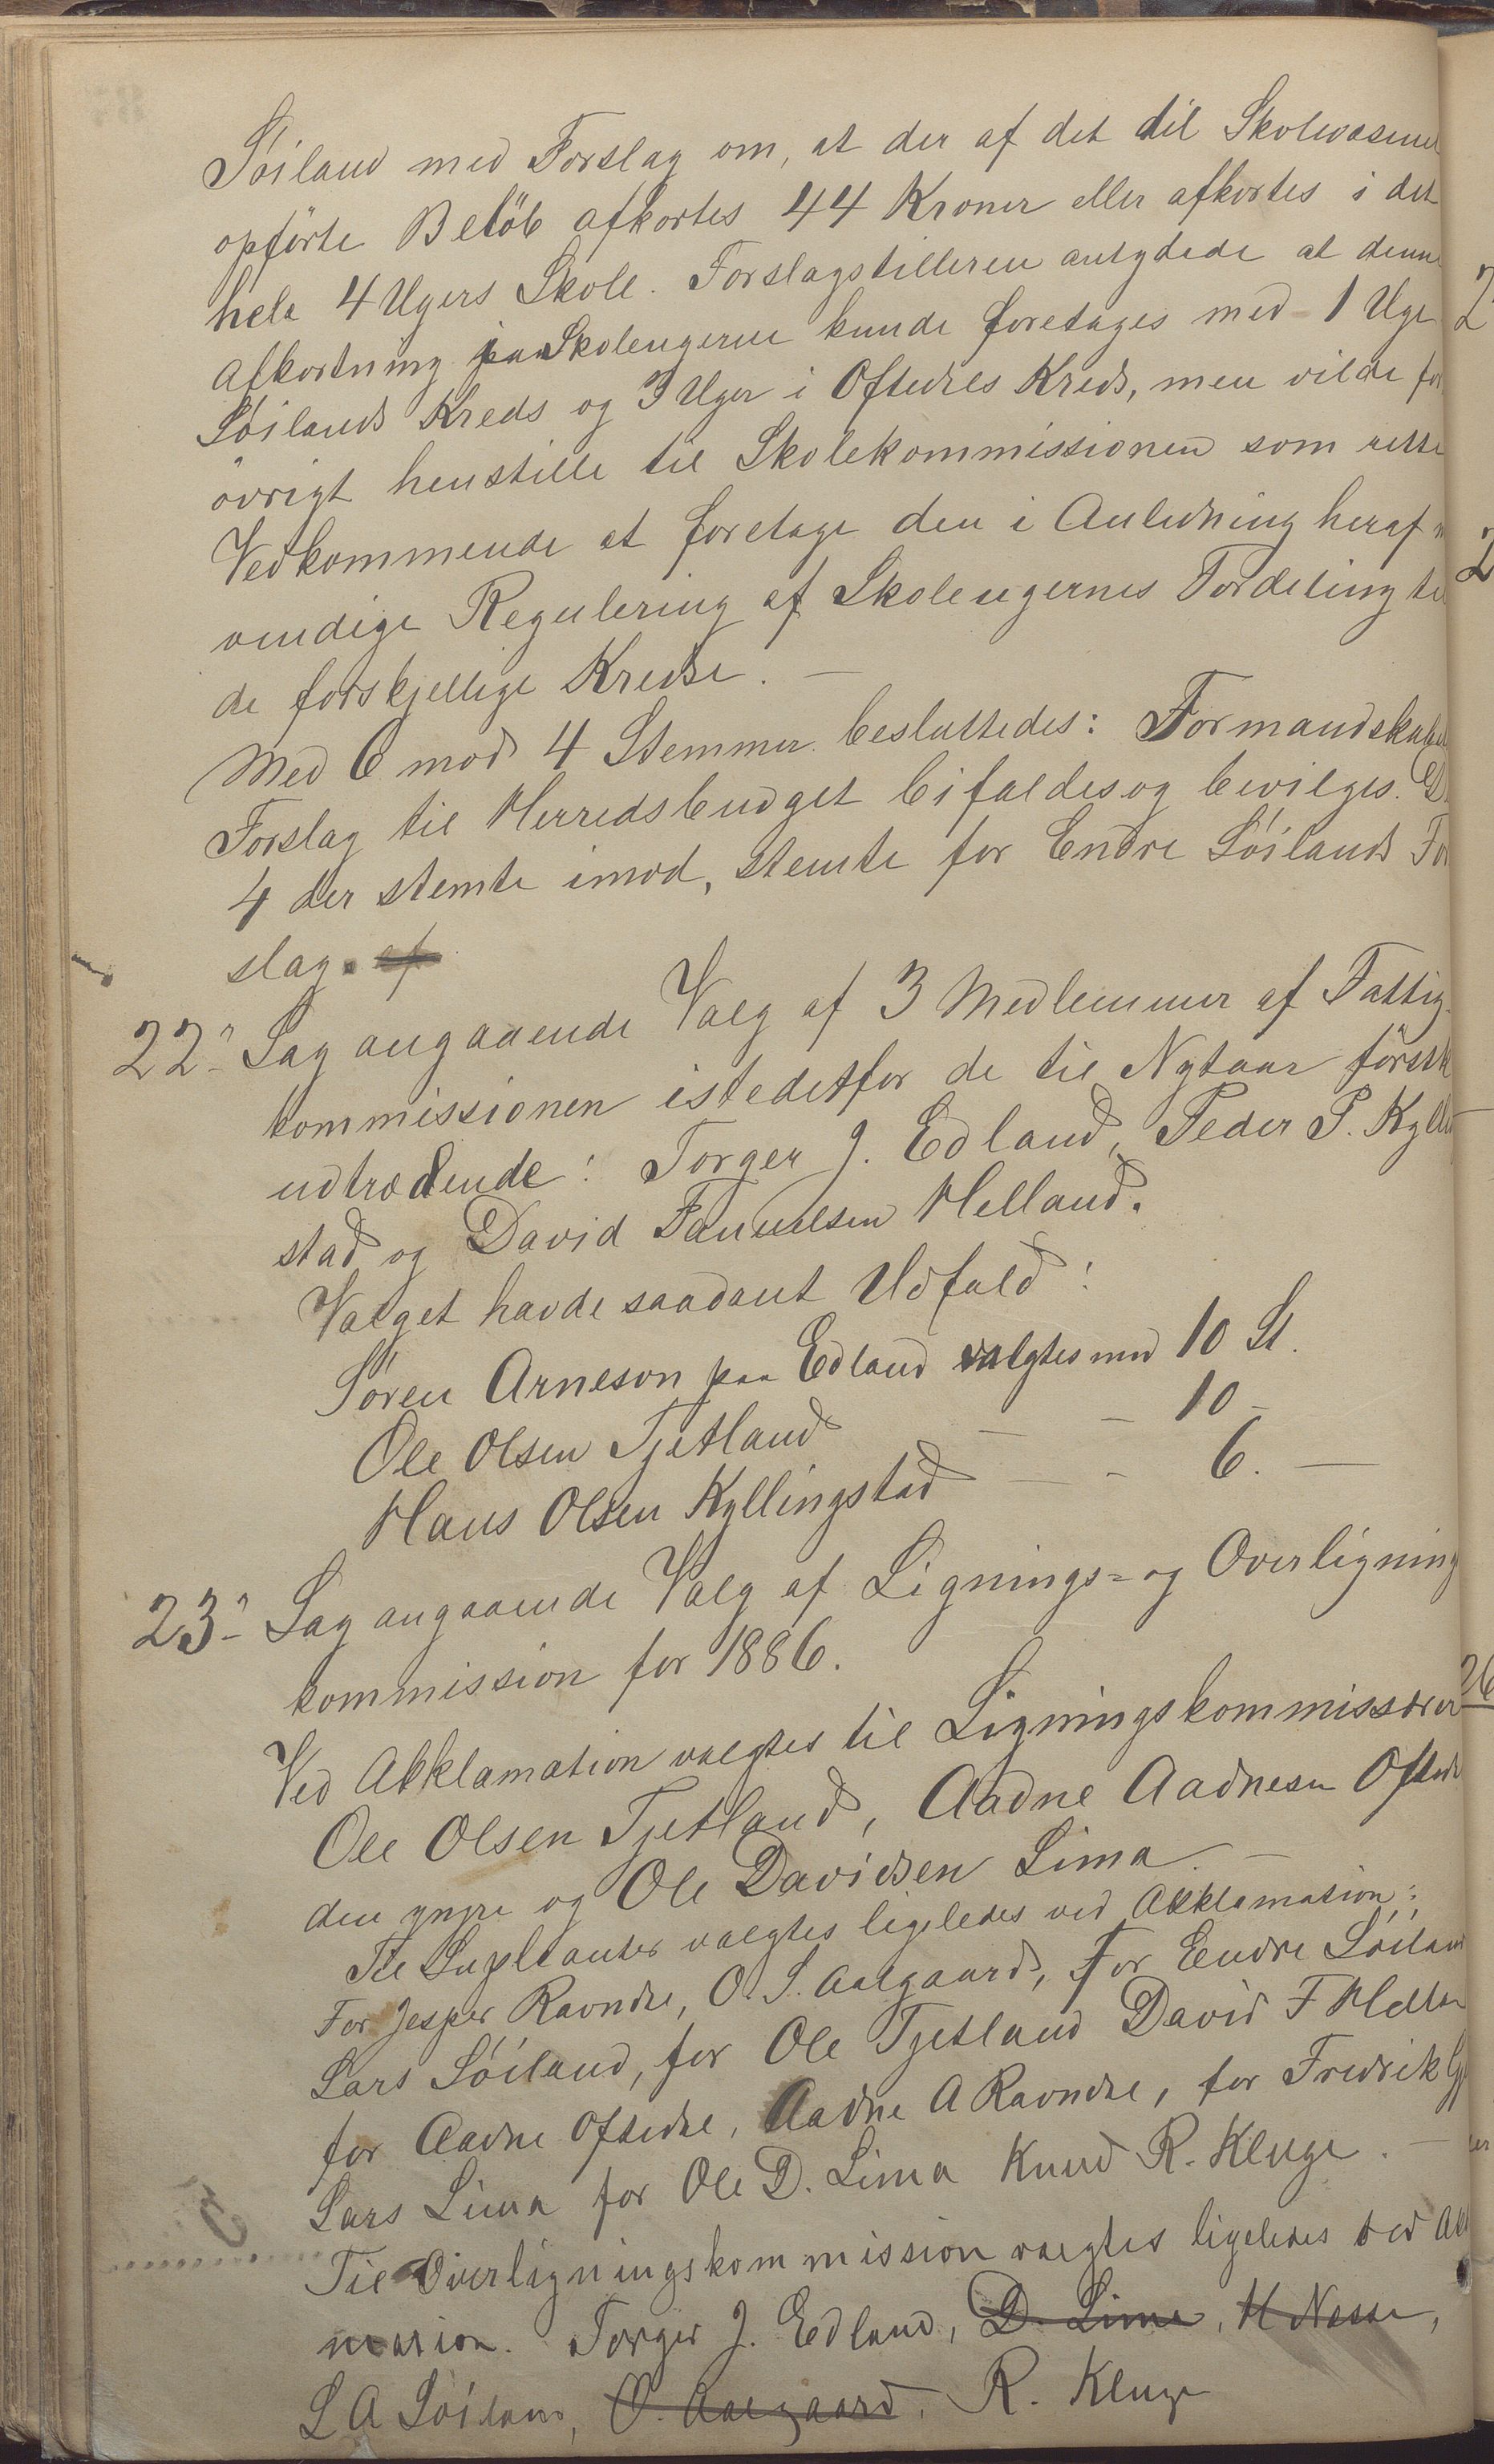 Söiland med Forslag om, at der af det til Skolevæsenet
opförte Belöb afkortes 44 Kroner eller afkortes i det
hele 4 Ugers Skole. Forslagstilleren antydede at denne
Afkortning paa Skoleugerne kunde foretages med 1 Uge
Söilands Kreds og 3 Uger i Oftedals Kreds, men vilde for
övrigt henstille til Skolekommissionen som rette
Vedkommende at foretage den i Anledning heraf n
vendige Regulering af Skoleugernes Fordeling til
de forskjellige Kredse. —
Med 6 mod 4 Stemmer besluttedes: Formandskabets
Forslag til Herredsbudget bifaldes og bevilges. De
4 der stemte imod, stemte for Endre Söilands For
slag. af
22. Sag angaaende Valg af 3 Medlemmer af Fattig-
kommissionen istedetfor de til Nytaar förstk
udtrædende: Torger J. Edland, Peder P. Kylling
stad og David Fanuelsen Helland.
Valget havde saadant Udfald:
Sören Arneson paa Edland valgtes med 10 St.
Ole Olsen Tjetland — - 10 -
Hans Olsen Kyllingstad — - 6. —
23. Sag angaaende Valg af Lignings- og Overligning
kommission for 1886.
Ved Akklamation valgtes til Ligningskommissærer
Ole Olsen Tjetland, Aadne Aadnesen Oftedal
den yngre og Ole Davidsen Lima. —
Til Suplianter valgtes ligeledes ved Akklamation:
For Jesper Ravndal, O. S. Aalgaard, For Endre Söiland
Lars Söiland, for Ole Tjetland David F Hellan
for Aadne Oftedal, Aadne A Ravndal, for Fredrik
Lars Lima for Ole D. Lima Knud R. Kluge. —
Til Overligningskommission valgtes ligeledes ved Akk
mation. Torger J. Edland, D. Lima, H Nesse,
L A Söiland, O. Aalgaard, R. Kluge